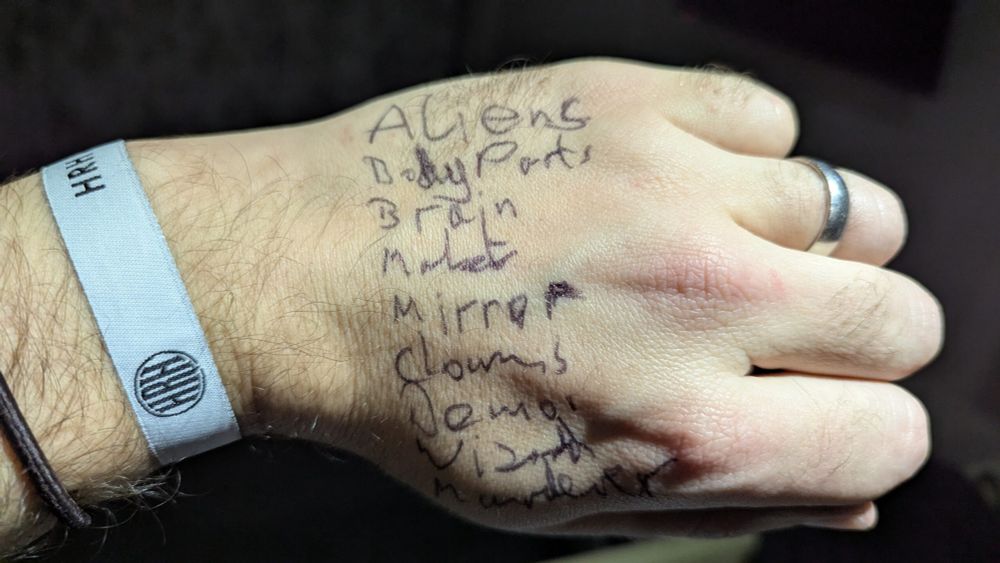 HRH
HRH
Aliens
Body Parts
Brain
Market
Mirror
Clowns
Demoi
Wizard
Murderer